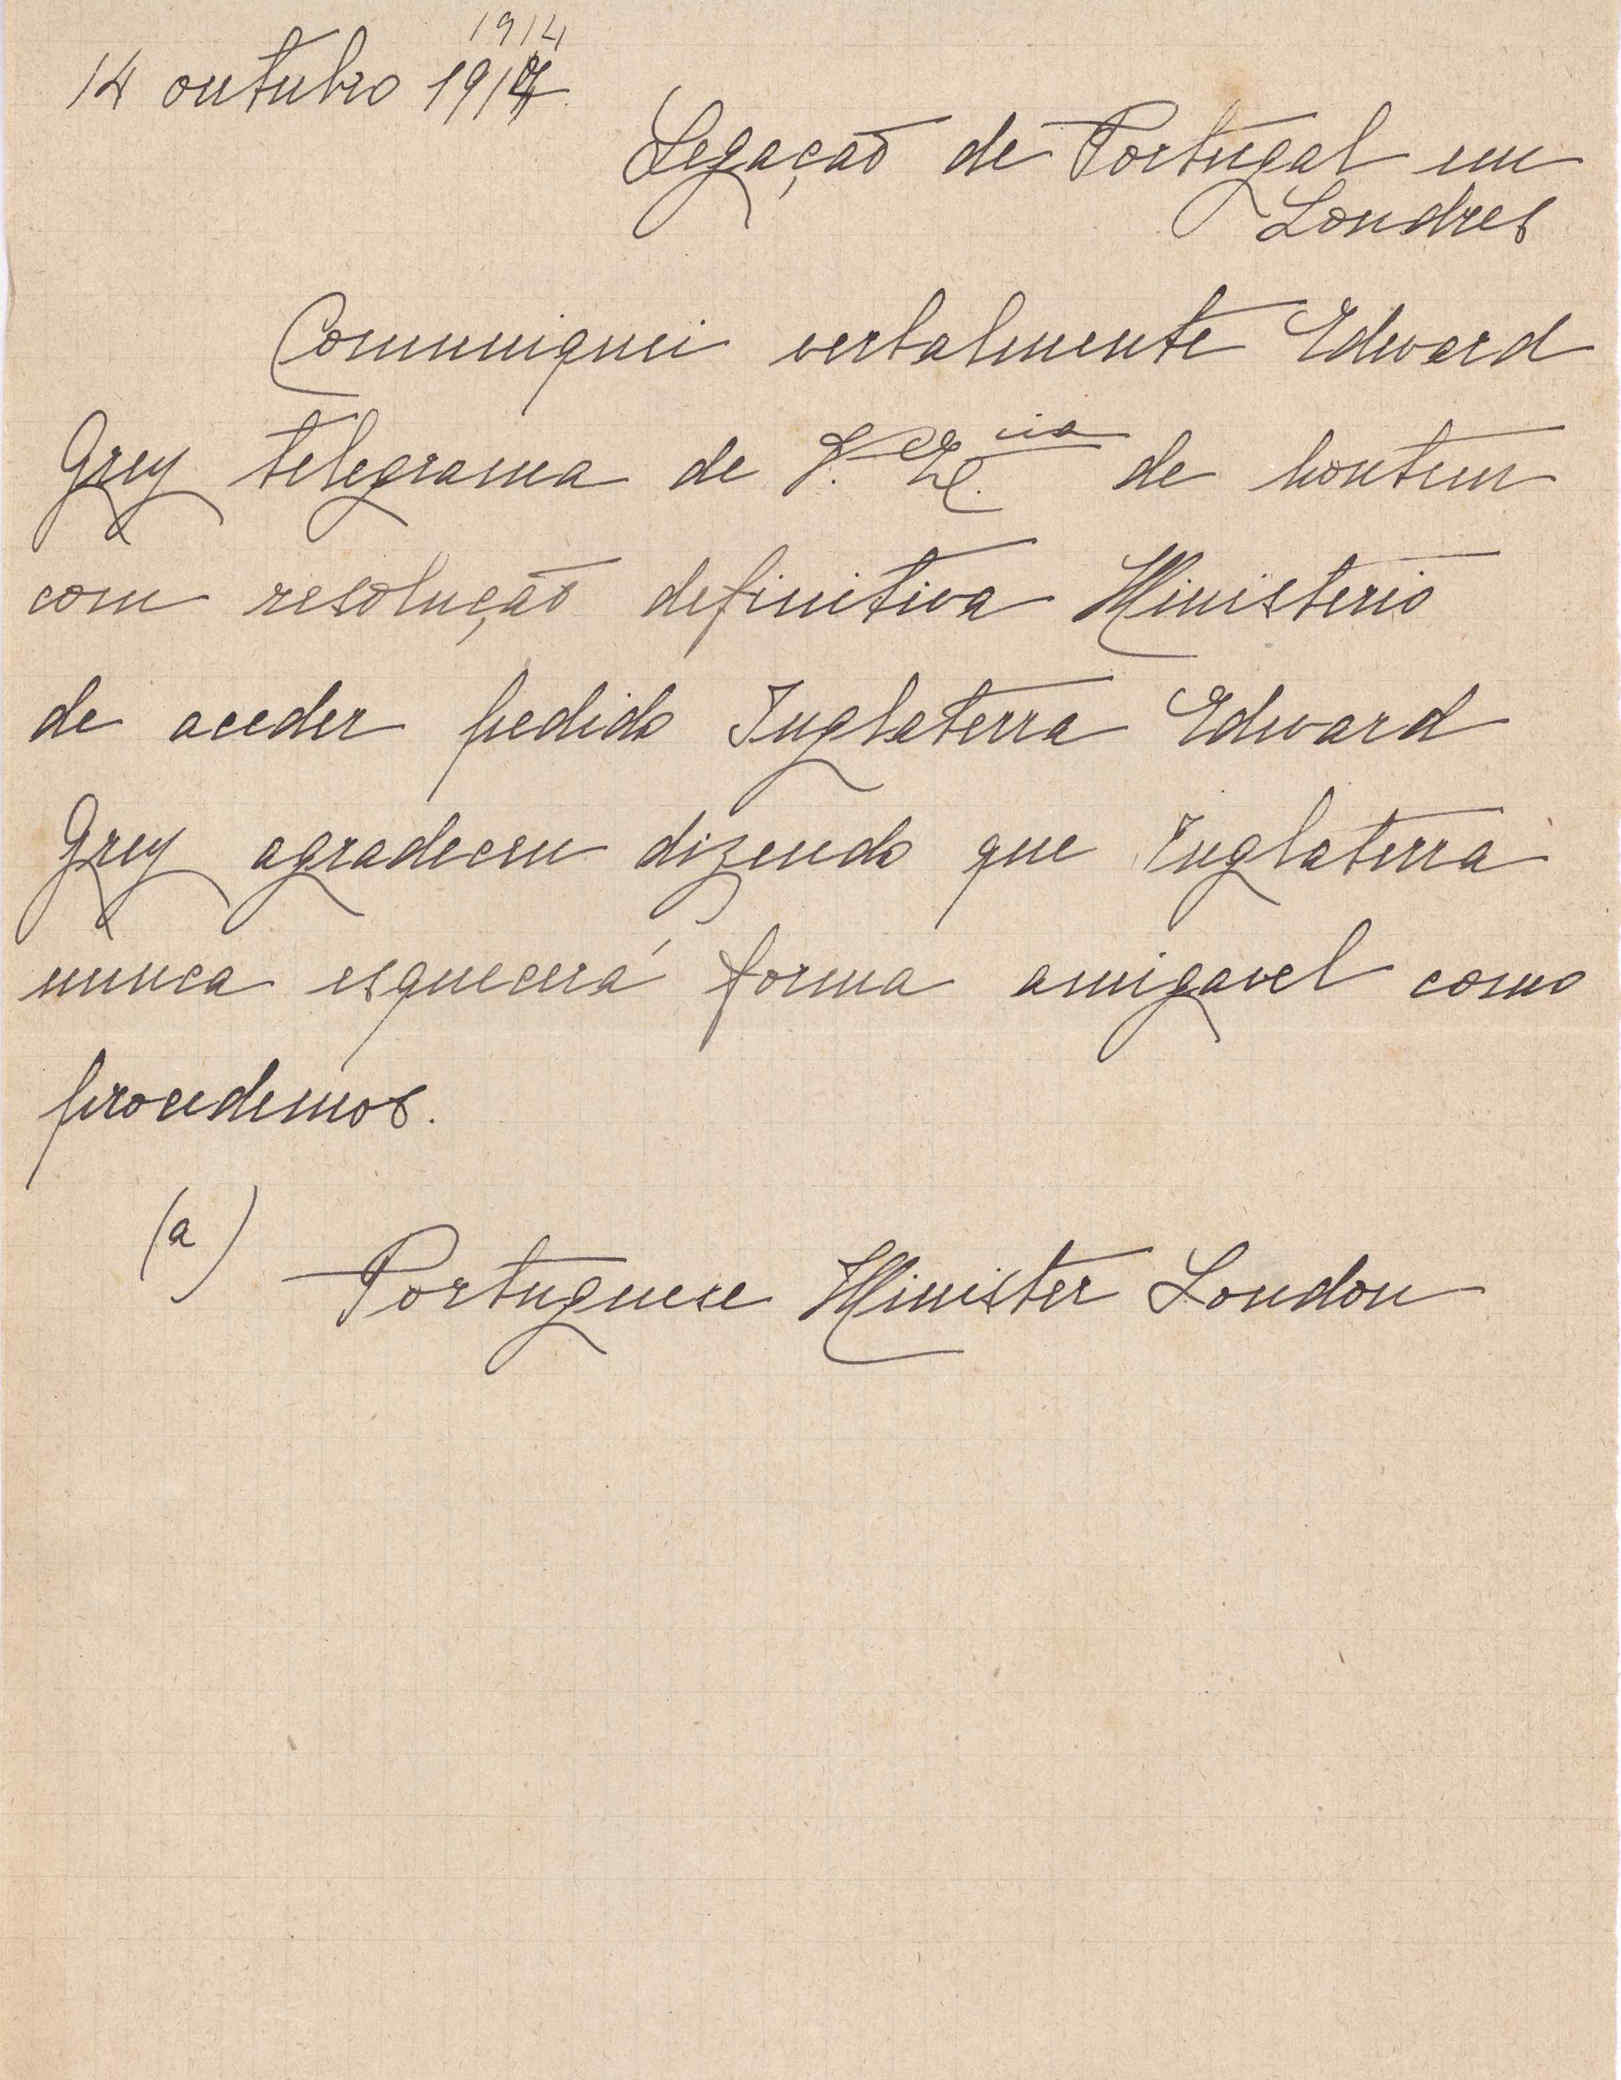 1914
14 outubro 1914
Legação de Portugal em
Londres
Comuniquei verbalmente Edward
Grey telegrama de V. Ex.cia de hontem
com resolução definitiva Ministerio
de aceder pedido Inglaterra Edward
Grey agradeceu dizendo que Inglaterra
nunca esquecerá forma amigavel como
procedemos.
(a)
Portuguese Minister London